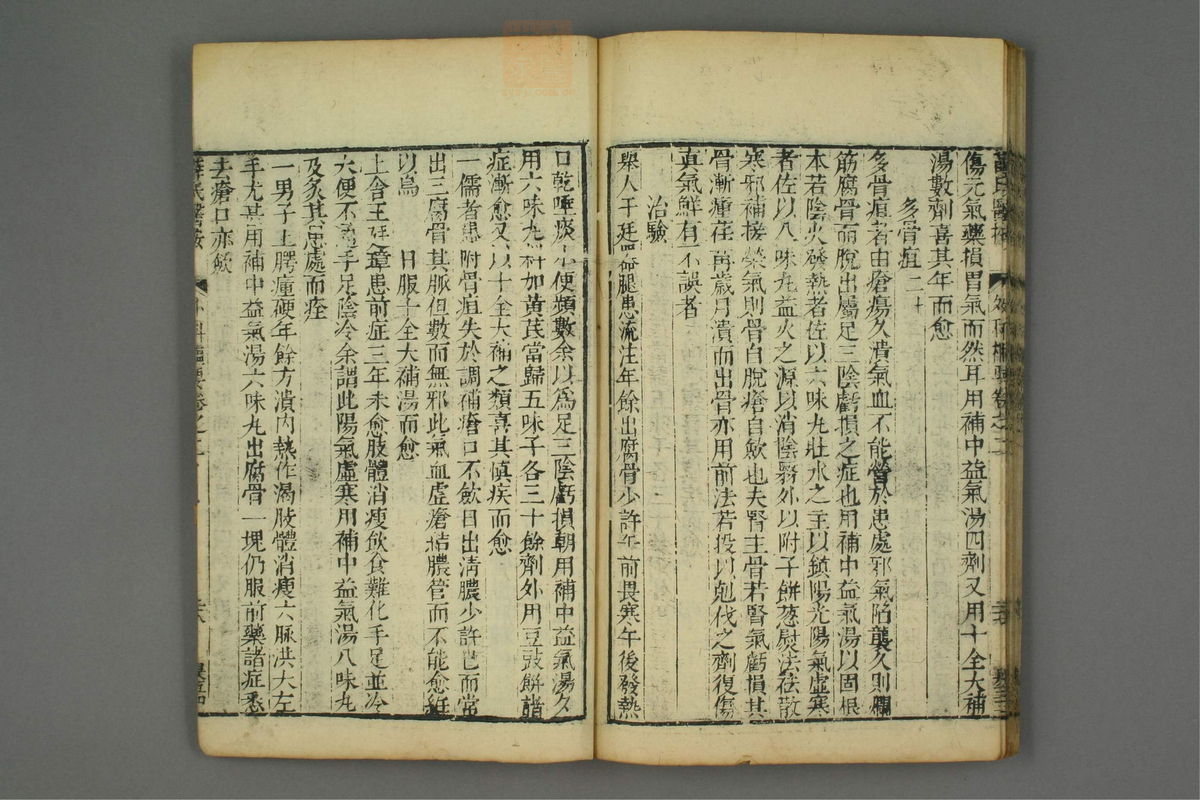 傷元氣藥損胃氣而然耳用補中益氣湯四劑又用十全大補
湯數劑喜其年而愈
多骨疽二十
多骨疽者由瘡瘍久潰氣血不能營於患處邪氣陷襲久則爛
筋腐骨而脫出屬足三陰虧損之症也用補中益氣湯以固根
本若陰火發熱者佐以六味丸壯水之主以鎮陽光陽氣虛寒
者佐以八味丸益火之源以消陰翳外以附子餅葱熨法祛散
寒邪補接榮氣則骨自脫瘡自歛也夫腎主骨若腎氣虧損其
骨漸腫荏苒歲月潰而出骨亦用前法若投以尅伐之劑復傷
真氣鮮有不誤者
治驗
舉人于廷器腿患流注年餘出腐骨少許午前畏寒午後發熱
口乾唾痰小便頻數余以為足三陰虧損朝用補中益氣湯夕
用六味丸料加黃芪當歸五味子各三十餘劑外用豆豉餅諸
症漸愈又以十全大補之類喜其慎疾而愈
一儒者患附骨疽失於調補瘡口不歛日出清膿少許已而常
出三腐骨其脈但數而無邪此氣血虛瘡結膿管而不能愈紝
以烏 日服十全大補湯而愈
上舍王廷璋患前症三年未愈肢體消瘦飲食難化手足並冷
大便不通手足陰冷余謂此陽氣虛寒用補中益氣湯八味丸
及灸其患處而痊
一男子上腭腫硬年餘方潰內熱作渴肢體消瘦六脈洪大左
手尤甚用補中益氣湯六味丸出腐骨一塊仍服前藥諸症悉
去瘡口亦歛
薛氏醫按 外科樞要卷之二